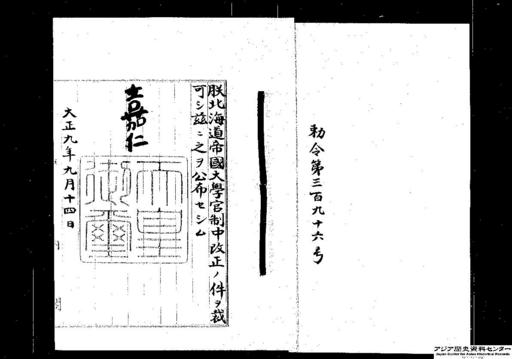 勅令第三百九十六号
朕北海道帝國大學官制中改正ノ件ヲ裁
可シ茲ニ之ヲ公布セシム
嘉仁
天皇御璽
大正九年九月十四日
アジア歴史資料センター
Japan Center for Asian Historical Records